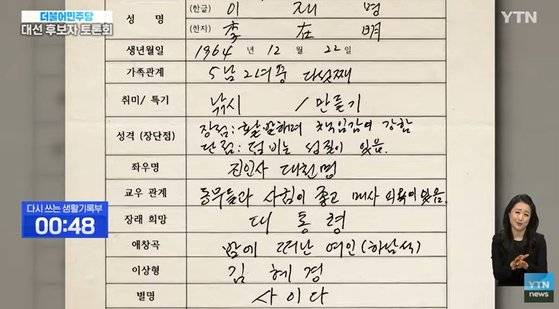 더불어민주당
대선 후보자 토론회
YTN
성 명 (한글) 이 재 명
(한자) 李 在 明
생년월일 1964 년 12 월 22 일
가족관계 5남 2녀중 다섯째
취미/ 특기 낚시 / 만들기
성격 (장단점) 장점: 활발하며 책임감이 강함
단점: 덤비는 성질이 있음.
좌우명 진인사 대천명
교우 관계 동무들과 사귐이 좋고 매사 의욕이 있음.
장래 희망 대통령
애창곡 밤에 떠난 여인(하남석)
이상형 김 혜 경
별명 사이다
다시 쓰는 생활기록부
00:48
YTN
news